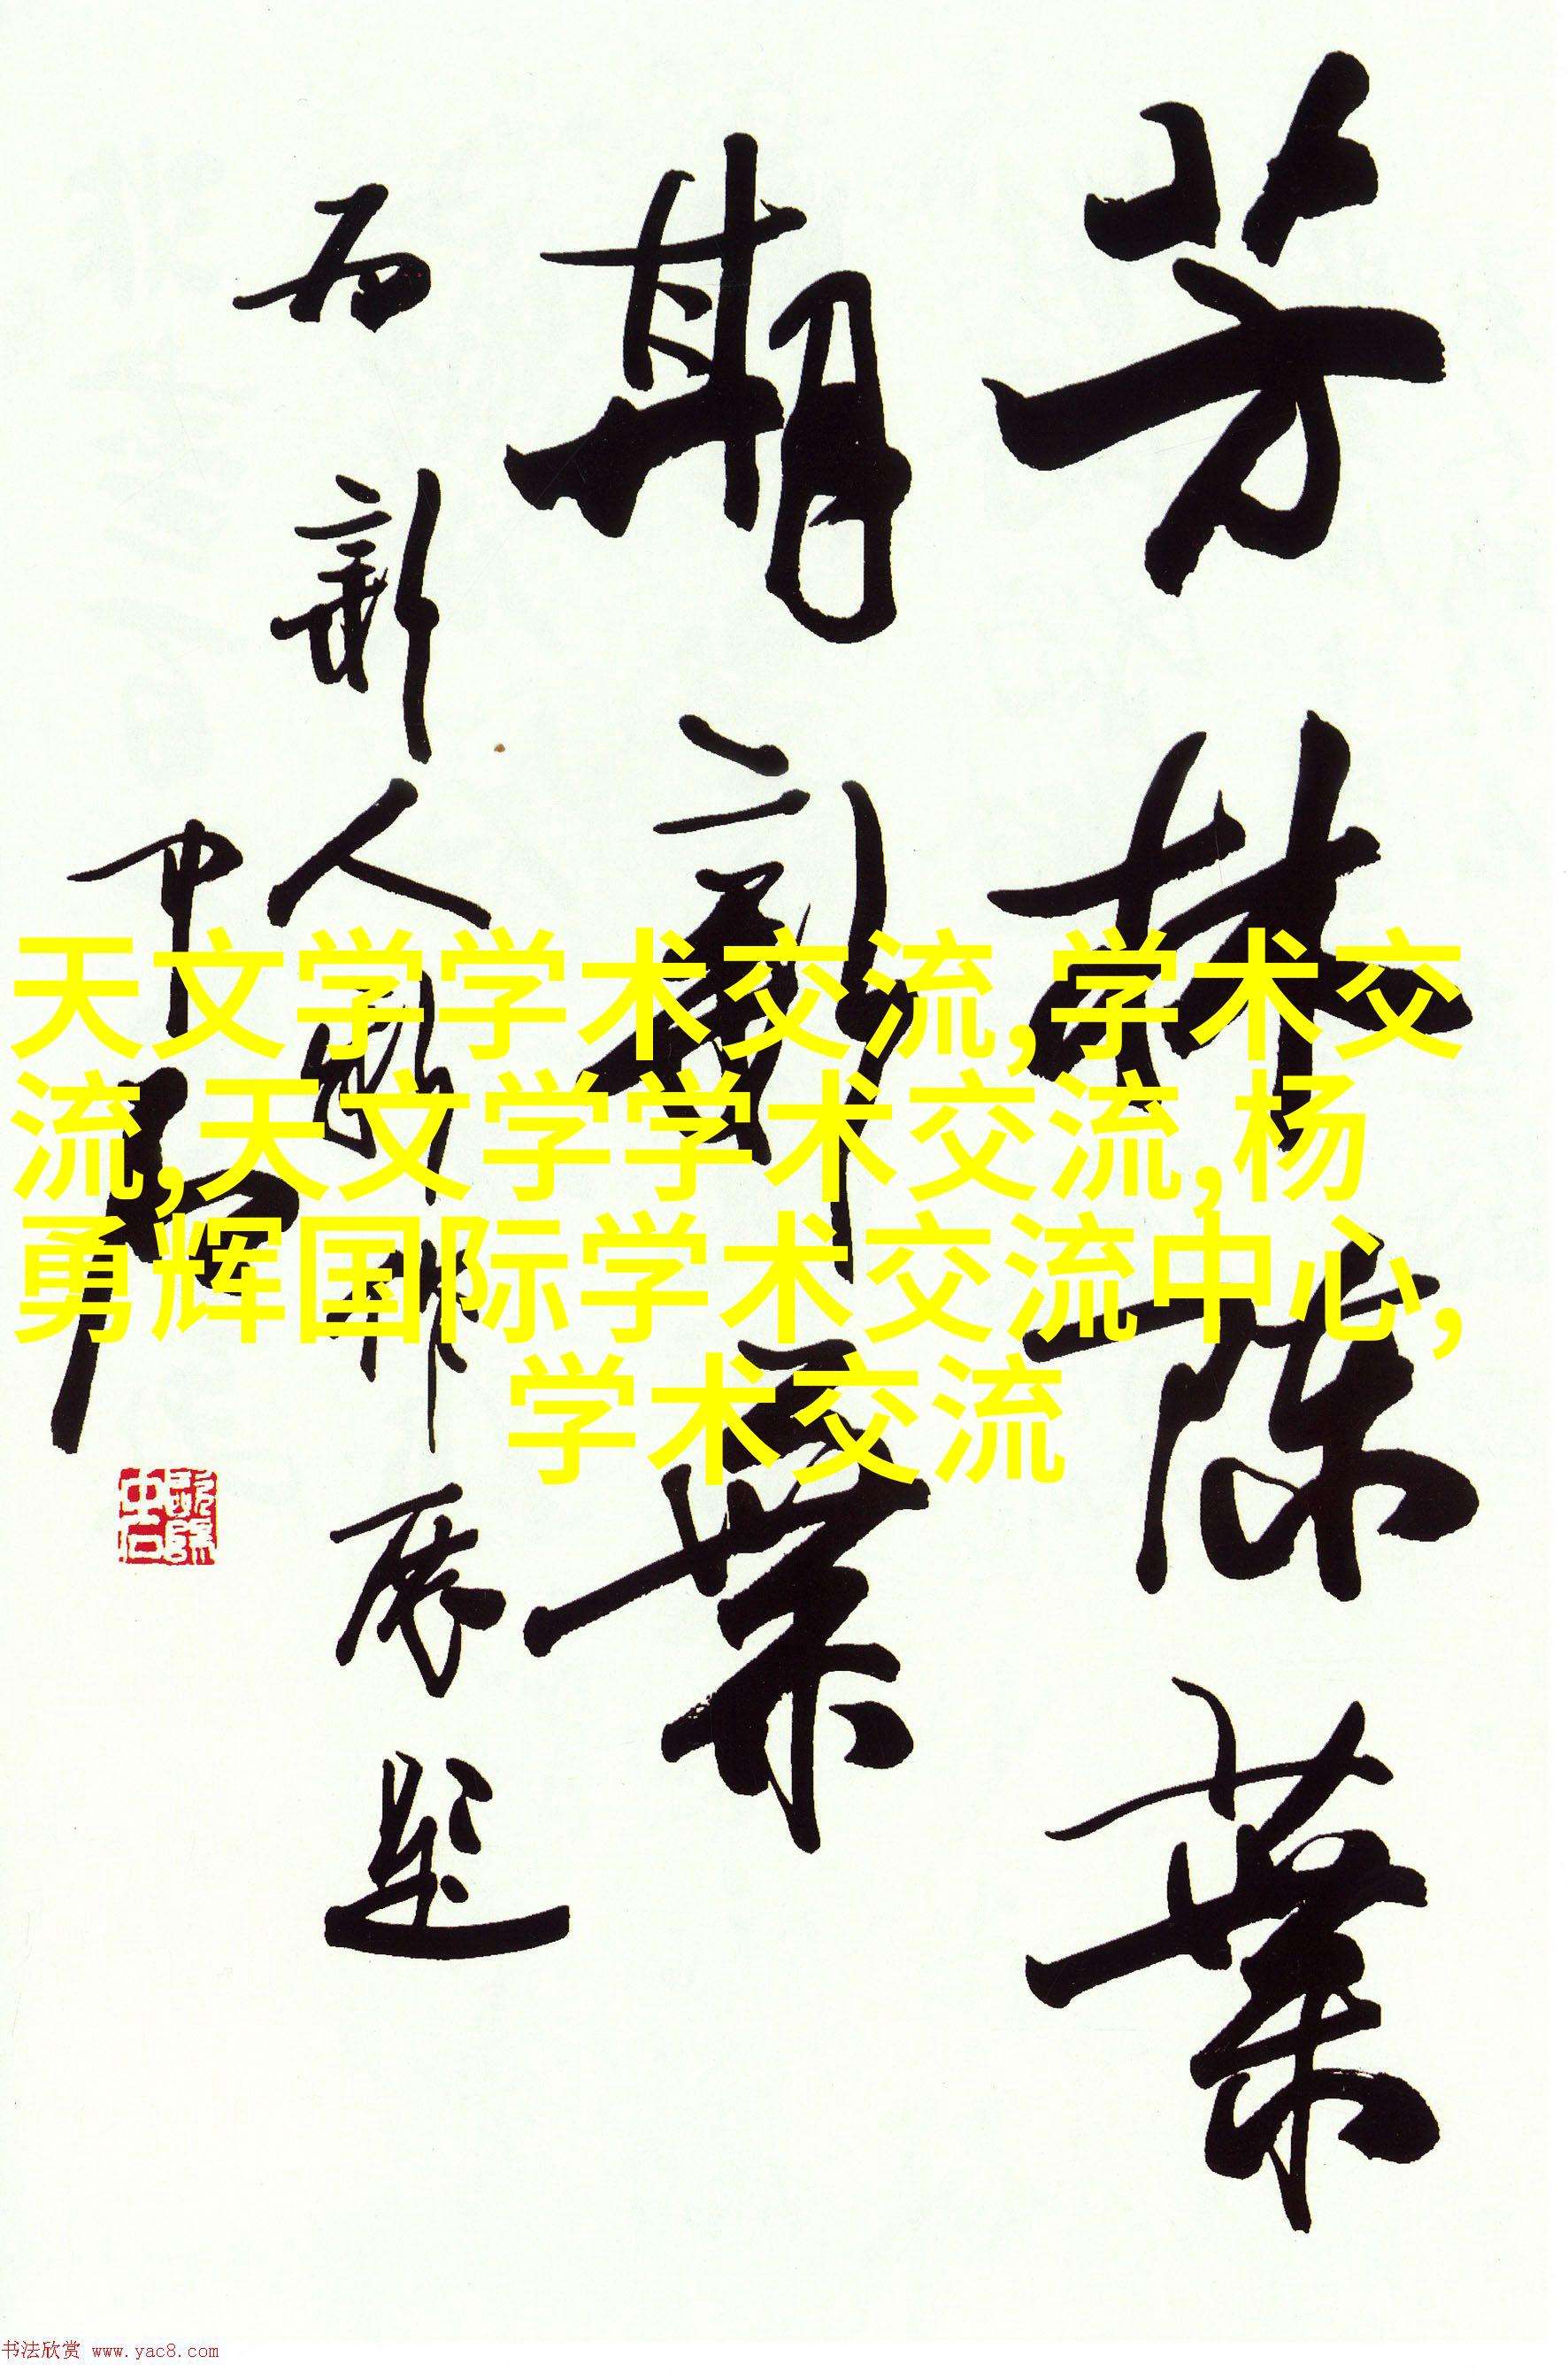 芳林陈叶
期新叶
为新人新作展题
中石
天文学学术交流,学术交
流,天文学学术交流,杨
勇辉国际学术交流中心,
学术交流
书法欣赏 www.yac8.com